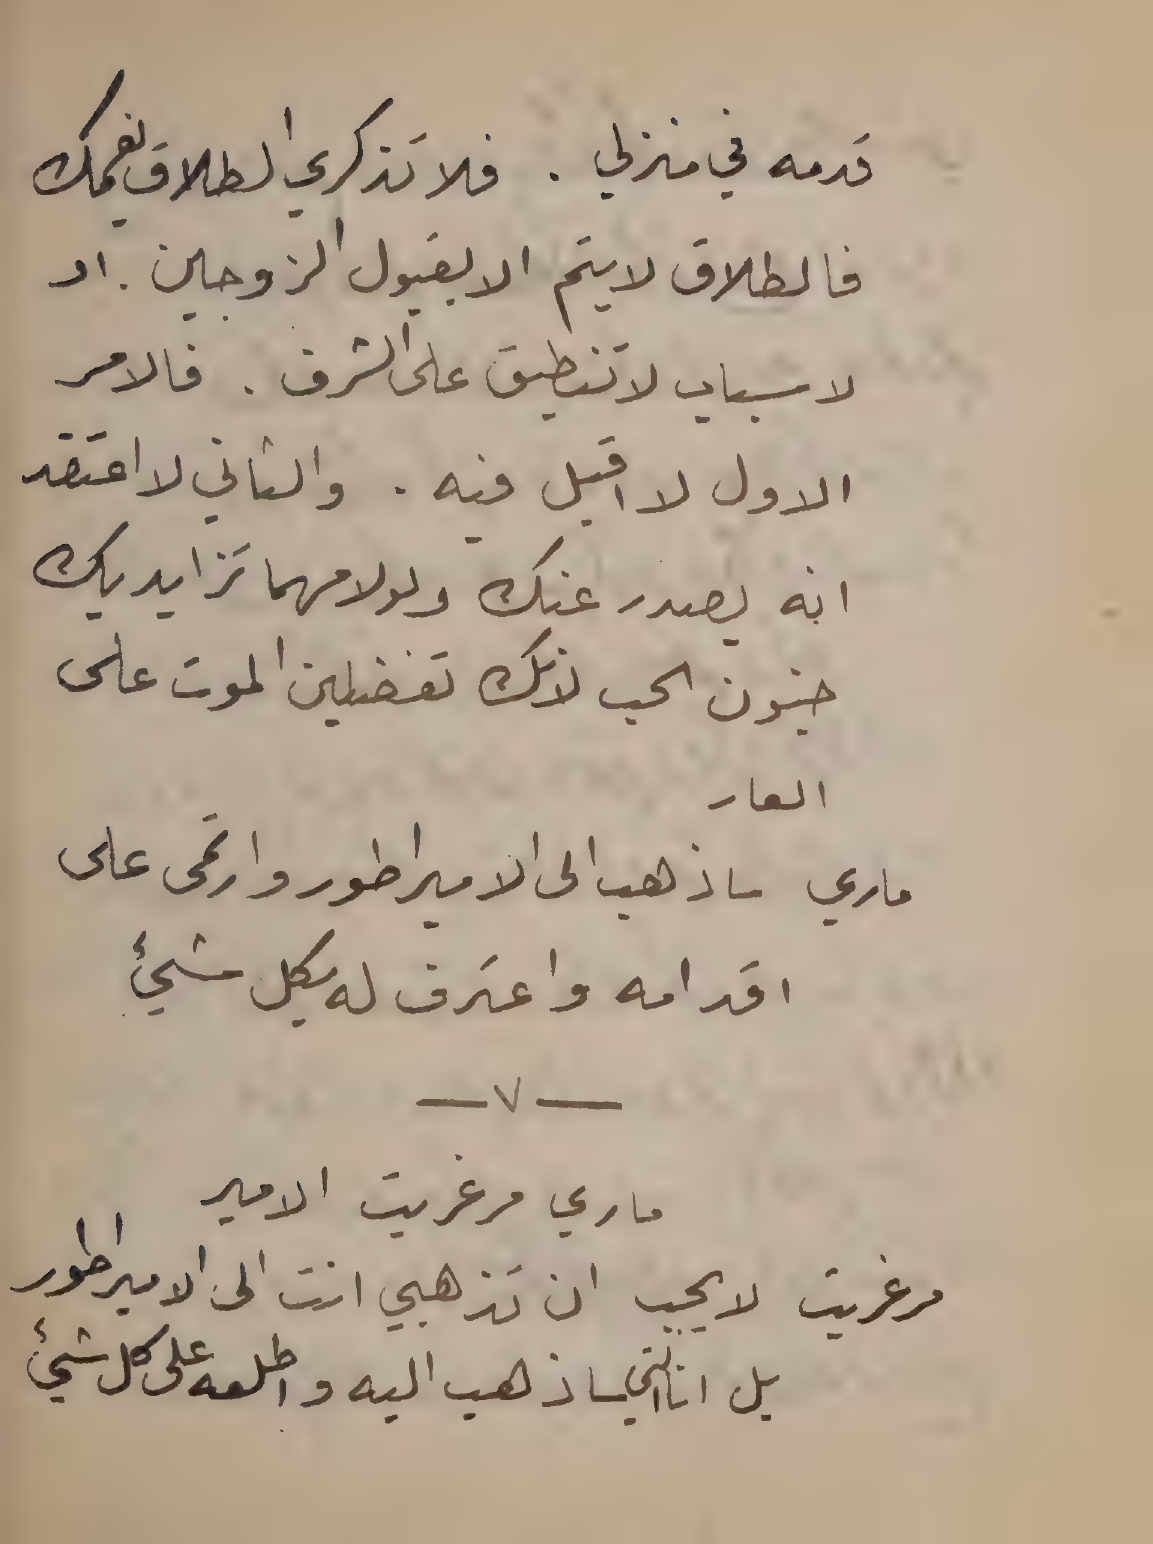 قدمه في منزلي . فلا تذكري الطلاق بفمك
فالطلاق لا يتم الا بقبول الزوجين . او
لاسباب لا تنطبق على الشرف . فالامر
الاول لا اقبل فيه . والثاني لا اعتقد
انه يصدر عنك ولولا مهما تزايد بك
جنون الحب لانك تفضلين الموت على
العار
ماري ساذهب الى الامبراطور وارتمى على
اقدامه واعترف له بكل شيئ
— ٧ —
ماري مرغريت الامير
مرغريت لا يجب ان تذهبي انت الى الامبراطور
بل انا التي ساذهب اليه واطلعه على كل شيئ